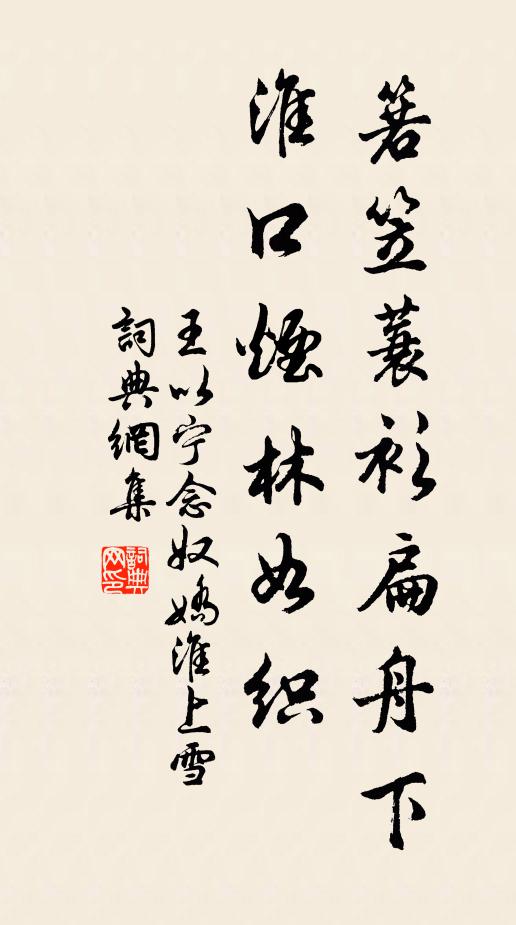 箬笠蓑衫扁舟下
淮口煙林如织
王以宁念奴嬌淮上雪
詞典網集
詞典网印